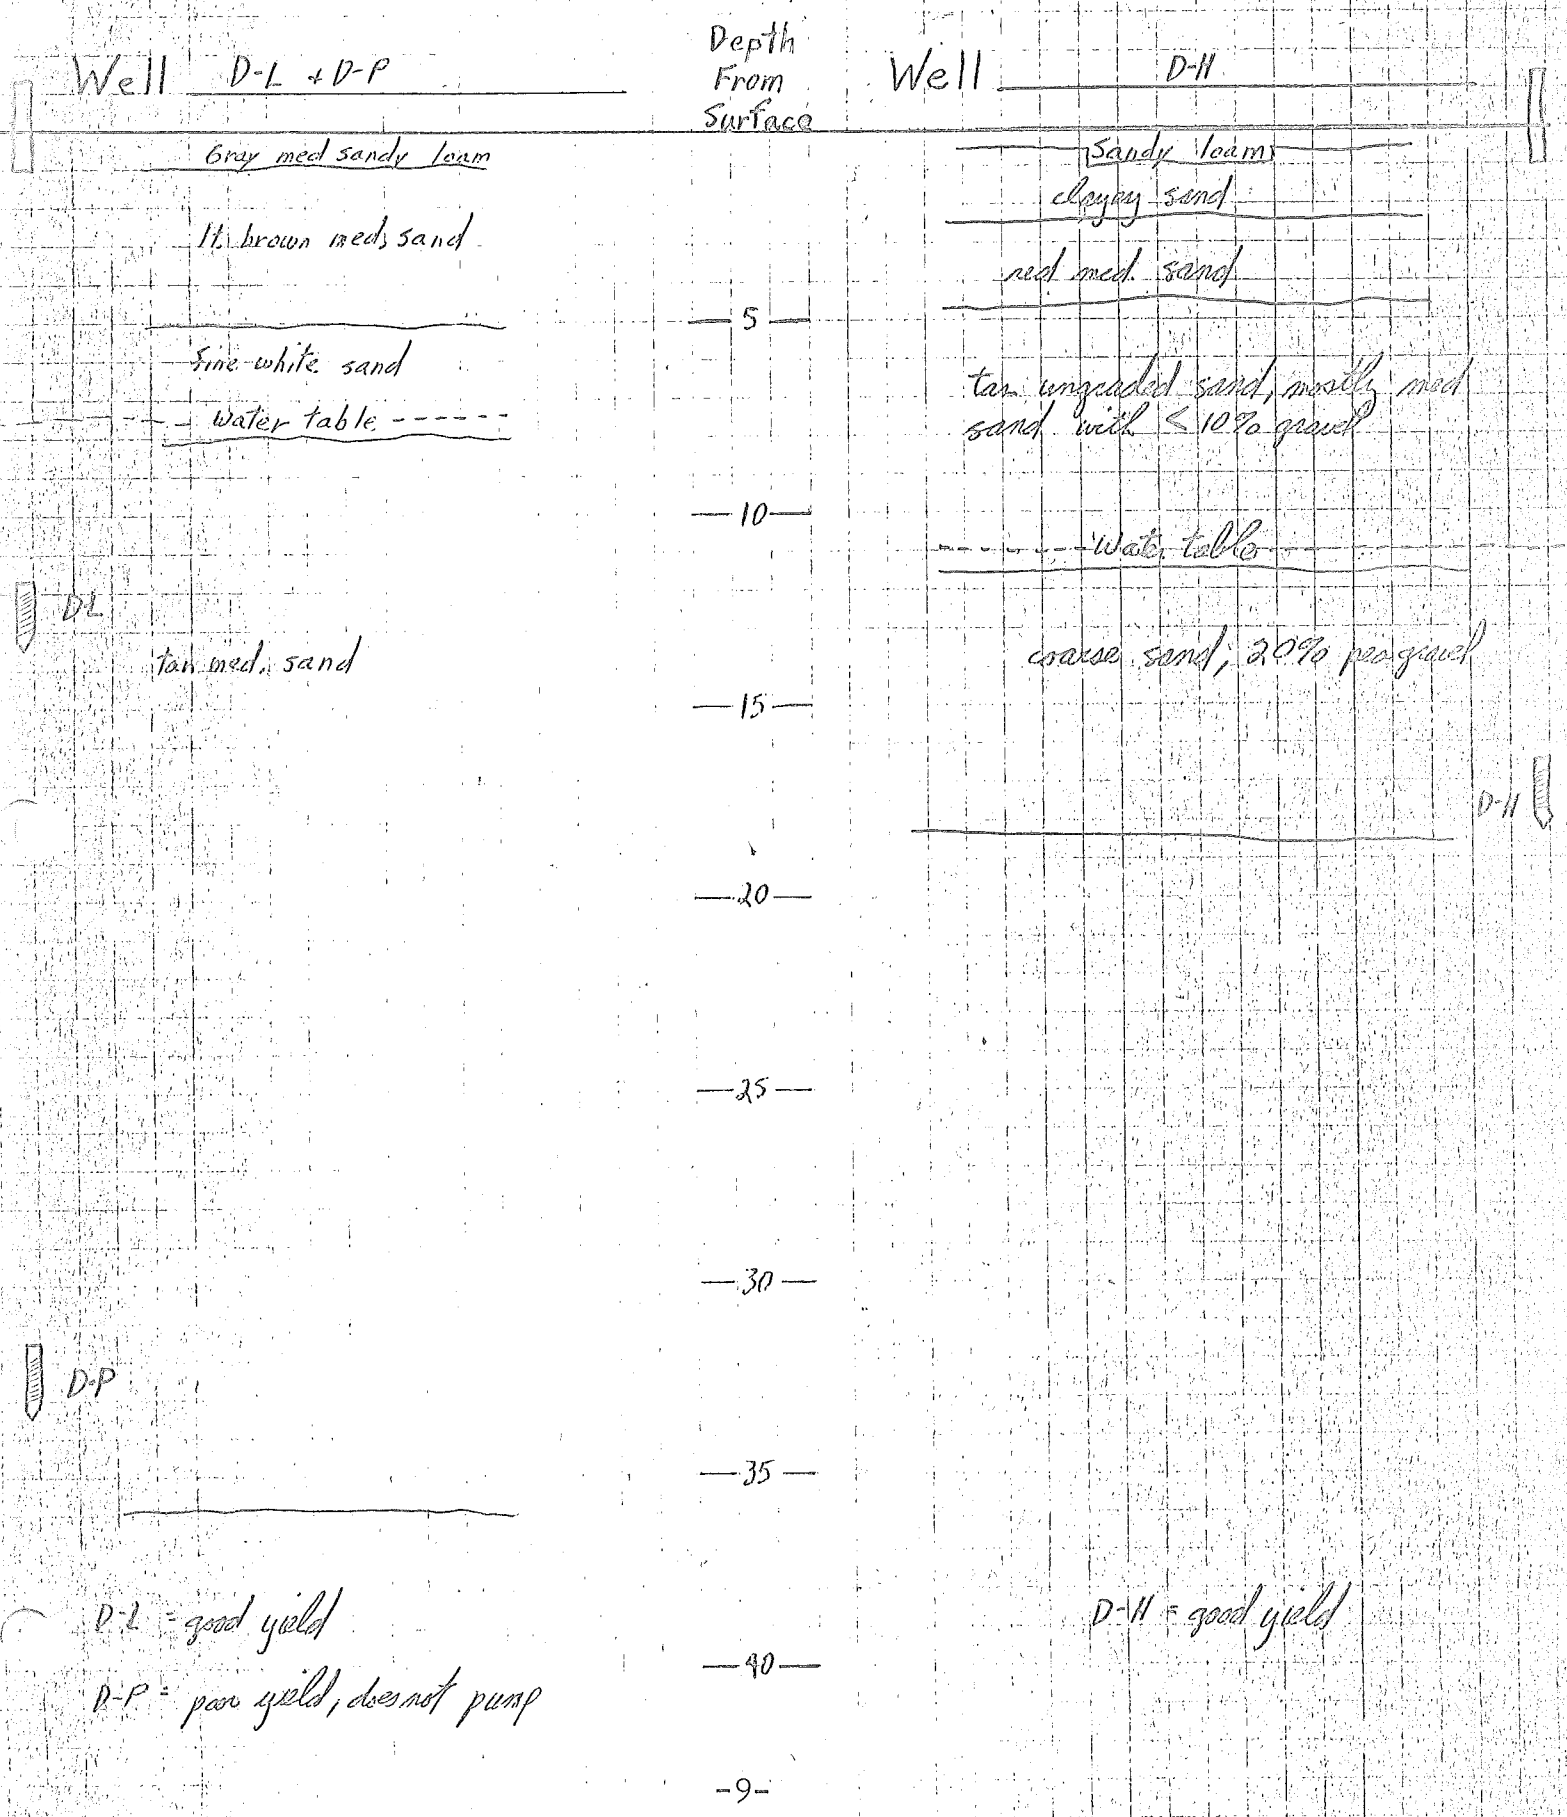 Well D-L + D-P
Gray med sandy loam
lt. brown med. sand
fine white sand
water table
D-L
tan med. sand
D-P
D-L = good yield
D-P = poor yield, does not pump
Depth
From
Surface
5
10
15
20
25
30
35
40
Well D-H
Sandy loam
clayey sand
red med. sand
tan ungraded sand, mostly med
sand with < 10% gravel
Water table
coarse sand, 20% pea gravel
D-H
D-H = good yield
-9-